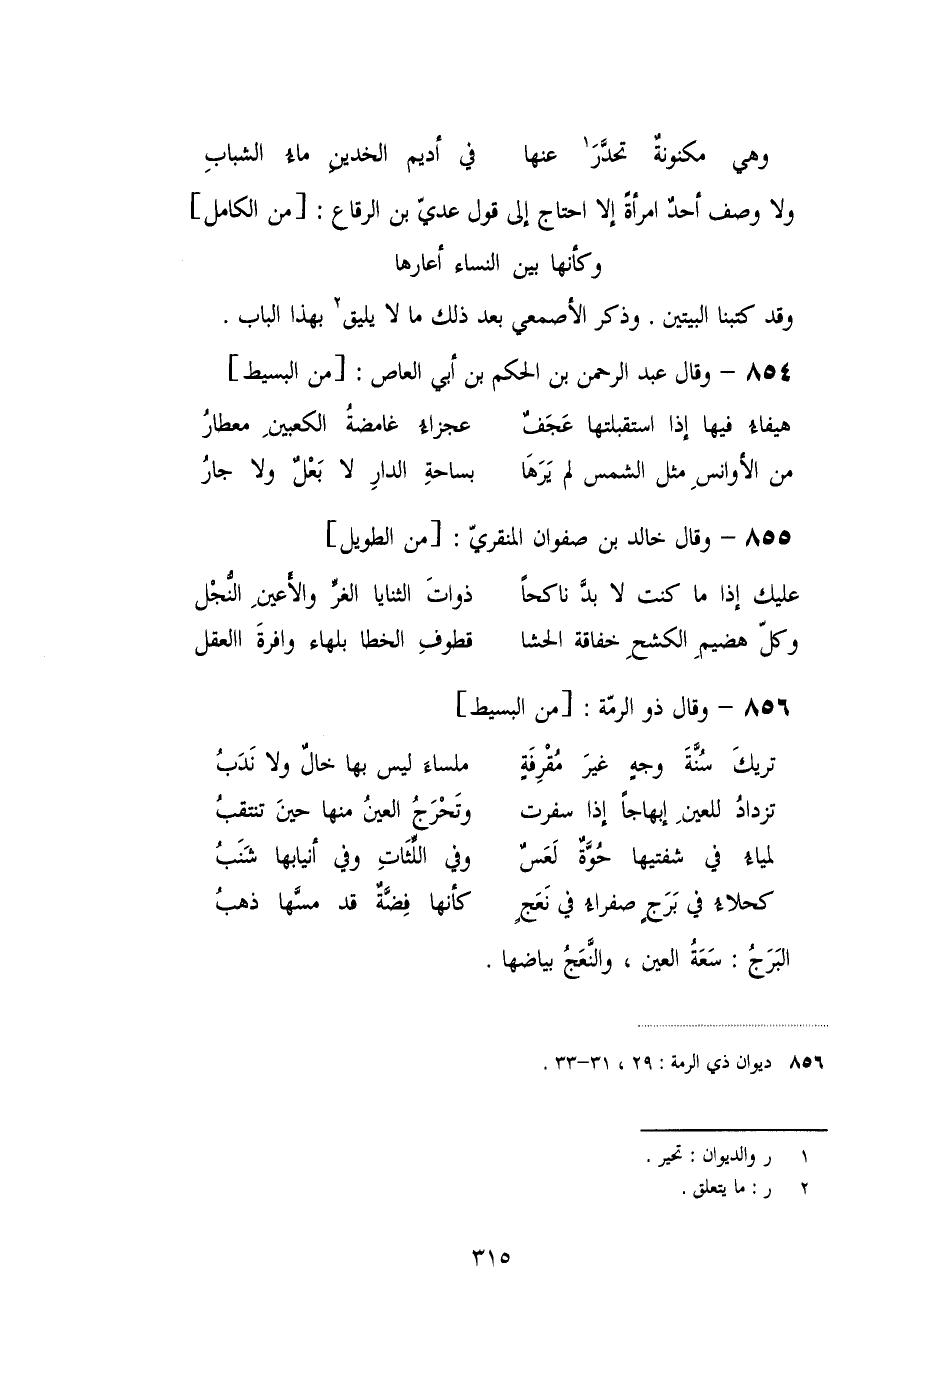 وهي مكنونةٌ تحدَّرَ١ عنها في أديم الخدينِ ماءُ الشبابِ
ولا وصف أحدٌ امرأةً إلا احتاج إلى قول عديّ بن الرقاع : [من الكامل]
وكأنها بين النساء أعارها
وقد كتبنا البيتين . وذكر الأصمعي بعد ذلك ما لا يليق٢ بهذا الباب .
٨٥٤ – وقال عبد الرحمن بن الحكم بن أبي العاص : [من البسيط]
هيفاءُ فيها إذا استقبلتها عَجَفٌ عجزاءُ غامضةُ الكعبينِ معطارُ
من الأوانسِ مثل الشمس لم يَرَهَا بساحةِ الدارِ لا بَعْلٌ ولا جارُ
٨٥٥ – وقال خالد بن صفوان المنقريّ : [من الطويل]
عليك إذا ما كنت لا بدَّ ناكحاً ذواتَ الثنايا الغرِّ والأَعينِ النُّجْل
وكلّ هضيمِ الكشحِ خفاقة الحشا قطوفِ الخطا بلهاء وافرةَ االعقل
٨٥٦ – وقال ذو الرمّة : [من البسيط]
تريكَ سُنَّةَ وجهٍ غيرَ مُقْرِفَةٍ ملساءَ ليس بها خالٌ ولا نَدَبُ
تزدادُ للعينِ إبهاجاً إذا سفرت وتَحْرَجُ العينُ منها حينَ تنتقبُ
لمياءُ في شفتيها حُوَّةٌ لَعَسٌ وفي اللِّثَاتِ وفي أنيابها شَنَبُ
كحلاءُ في بَرَجٍ صفراءُ في نَعَجٍ كأنها فِضَّةٌ قد مسَّها ذهبُ
البَرَجُ : سَعَةُ العين ، والنَّعَجُ بياضها .
٨٥٦ ديوان ذي الرمة : ٢٩ ، ٣١–٣٣ .
١ ر والديوان : تحير .
٢ ر : ما يتعلق .
٣١٥